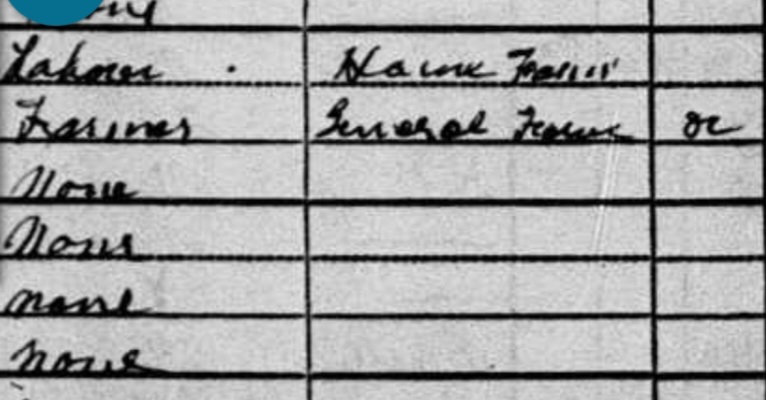 Laborer Home Farm
Farmer General Farm oa
None
None
None
None